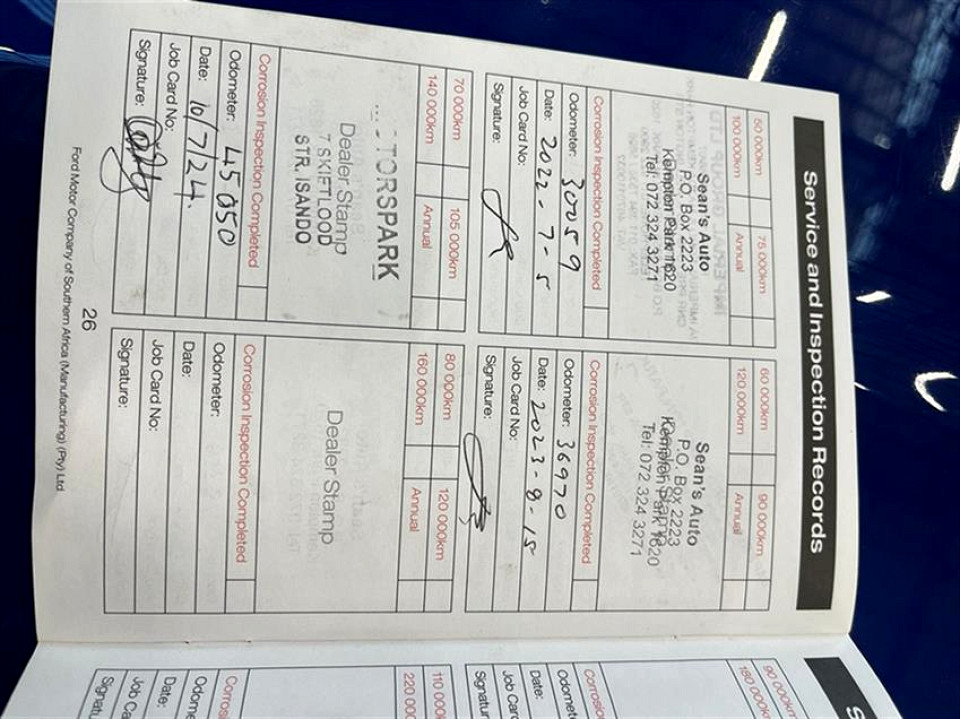 Service and Inspection Records
50 000km
75 000km
100 000km
Annual
Sean's Auto
P.O. Box 2223
Kempton Park 1620
Tel: 072 324 3271
Corrosion Inspection Completed
Odometer: 30059
Date: 2022-7-5
Job Card No:
Signature:
60 000km
90 000km
120 000km
Annual
Sean's Auto
P.O. Box 2223
Kempton Park 1620
Tel: 072 324 3271
Corrosion Inspection Completed
Odometer: 36970
Date: 2023-8-15
Job Card No:
Signature:
70 000km
105 000km
140 000km
Annual
TORSPARK
Dealer Stamp
7 SKIETLOOD
STR. ISANDO
Corrosion Inspection Completed
Odometer: 45050
Date: 10/7/24.
Job Card No:
Signature:
80 000km
120 000km
160 000km
Annual
Dealer Stamp
Corrosion Inspection Completed
Odometer:
Date:
Job Card No:
Signature:
26
Ford Motor Company of Southern Africa (Manufacturing) (Pty) Ltd
S
90 000km
180 000k
Corrosi
Odomet
Date:
Job Card
Signatur
110 000
220 000
Corros
Odome
Date:
Job Ca
Signatu